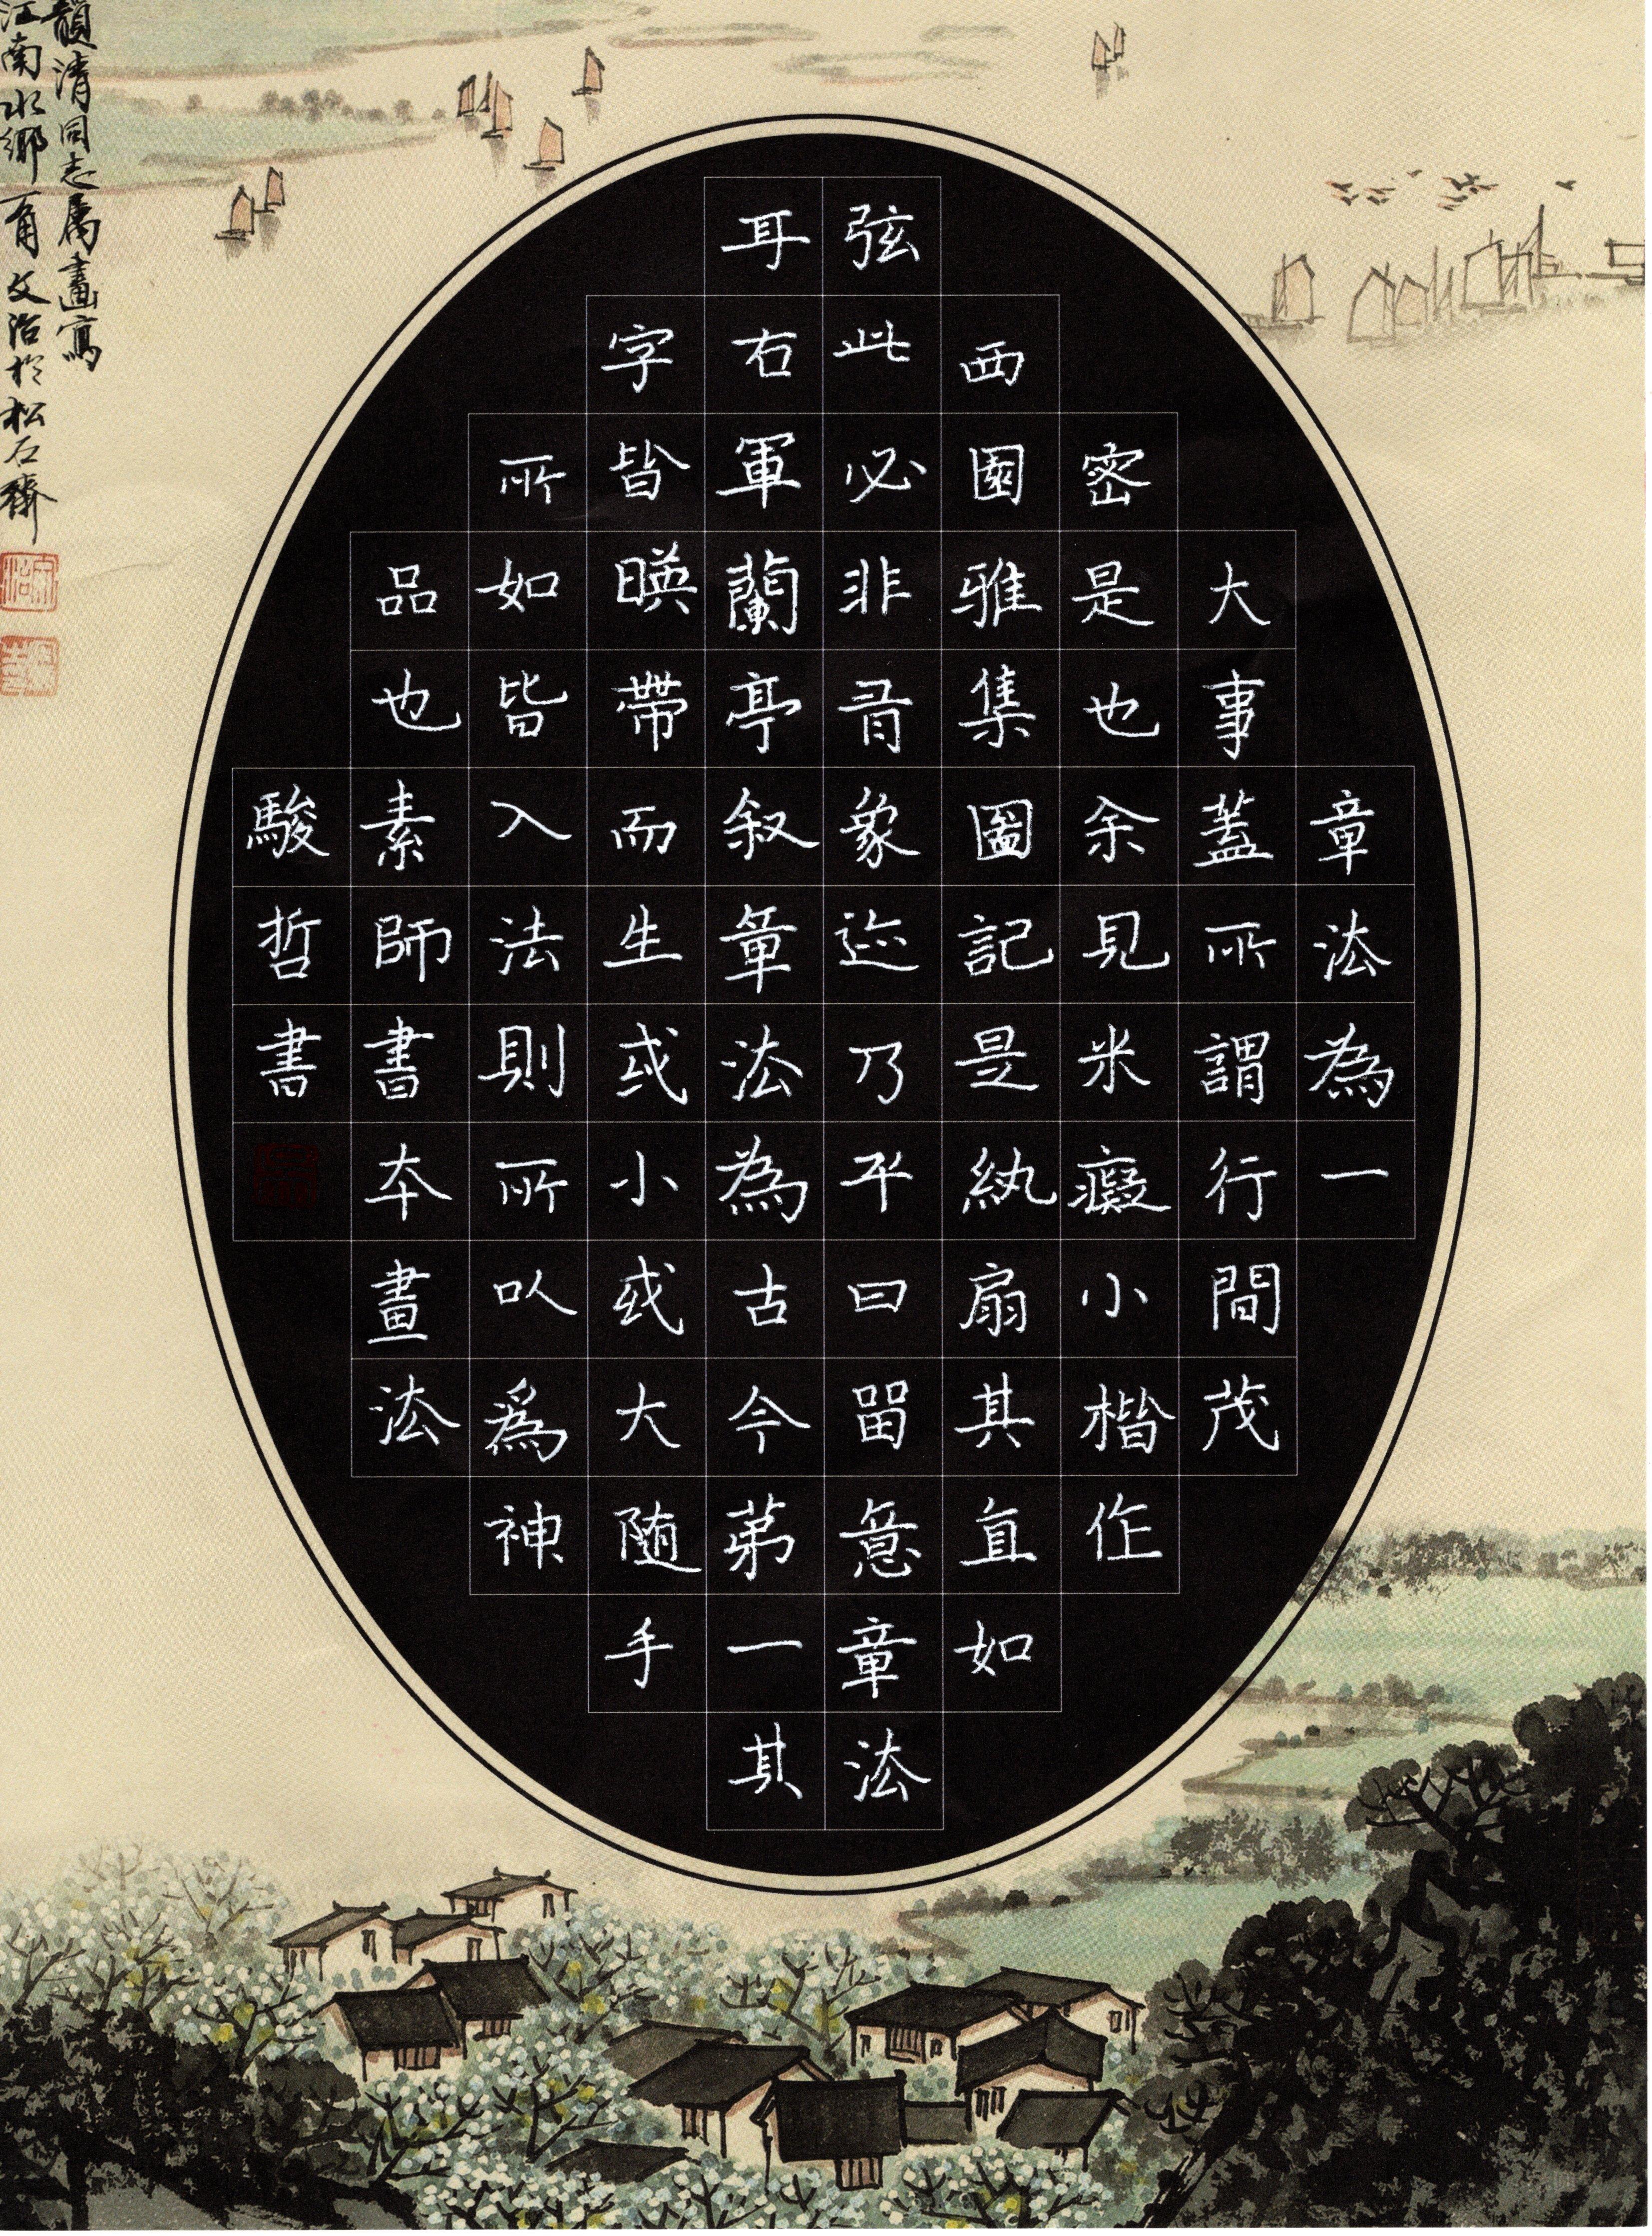 韻清同志属畫寫
江南水鄉一角文治於松石齋
章法為一
大事蓋所謂行間茂
密是也余見米癡小楷作
西園雅集圖記是紈扇其直如
弦此必非象迹乃平曰留意章法
耳右軍蘭亭叙章法為古今苐一其
字皆暎帶而生或小或大随手
所如皆入法則所以爲神
品也素師書本畫法
駿哲書